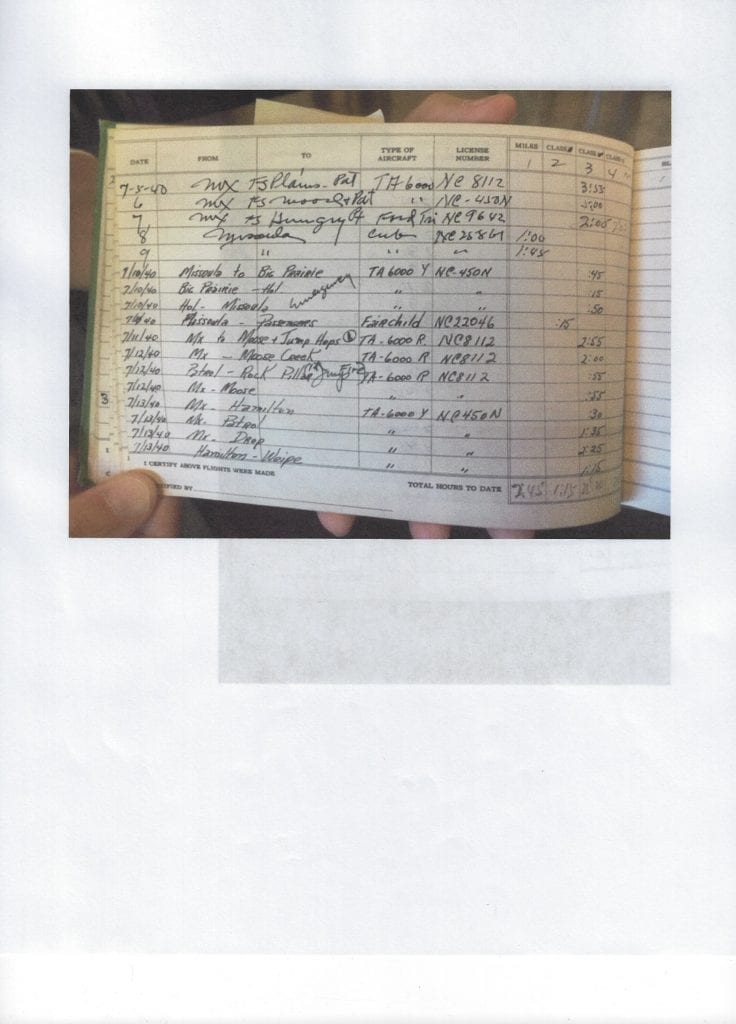 DATE FROM TO TYPE OF AIRCRAFT LICENSE NUMBER MILES CLASS CLASS CLASS
1 2 3 4
7-5-40 MX FS Plains - Pat TA6000 NC 8112 3:55
6 MX FS Moose + Pat " NC-450N 2:00
7 MX FS Hungry Ford Tri NC 9642 2:05
8 Missoula Cub 1:00
9 " " " 1:45
7/10/40 Missoula to Big Prairie TA 6000 Y NC-450N :45
7/10/40 Big Prairie - Hol emergency " " :15
7/10/40 Hol - Missoula " " :50
Missoula - Passengers Fairchild NC22046 :15
7/11/40 Mx to Moose + Jump Haps ① TA-6000 R NC8112 2:55
7/12/40 Mx - Moose Creek TA-6000 R NC8112 2:00
7/12/40 Patrol - Rock Pillar TA-6000 R NC8112 :55
7/12/40 Mx - Moose :55
7/13/40 Mx - Hamilton TA-6000 Y NC450N :30
7/13/40 Mx - Patrol " " 1:35
7/13/40 Mx - Drop " " 2:25
7/13/40 Hamilton - Weipe " " 1:15
I CERTIFY ABOVE FLIGHTS WERE MADE
TOTAL HOURS TO DATE 2:45 1:15
3